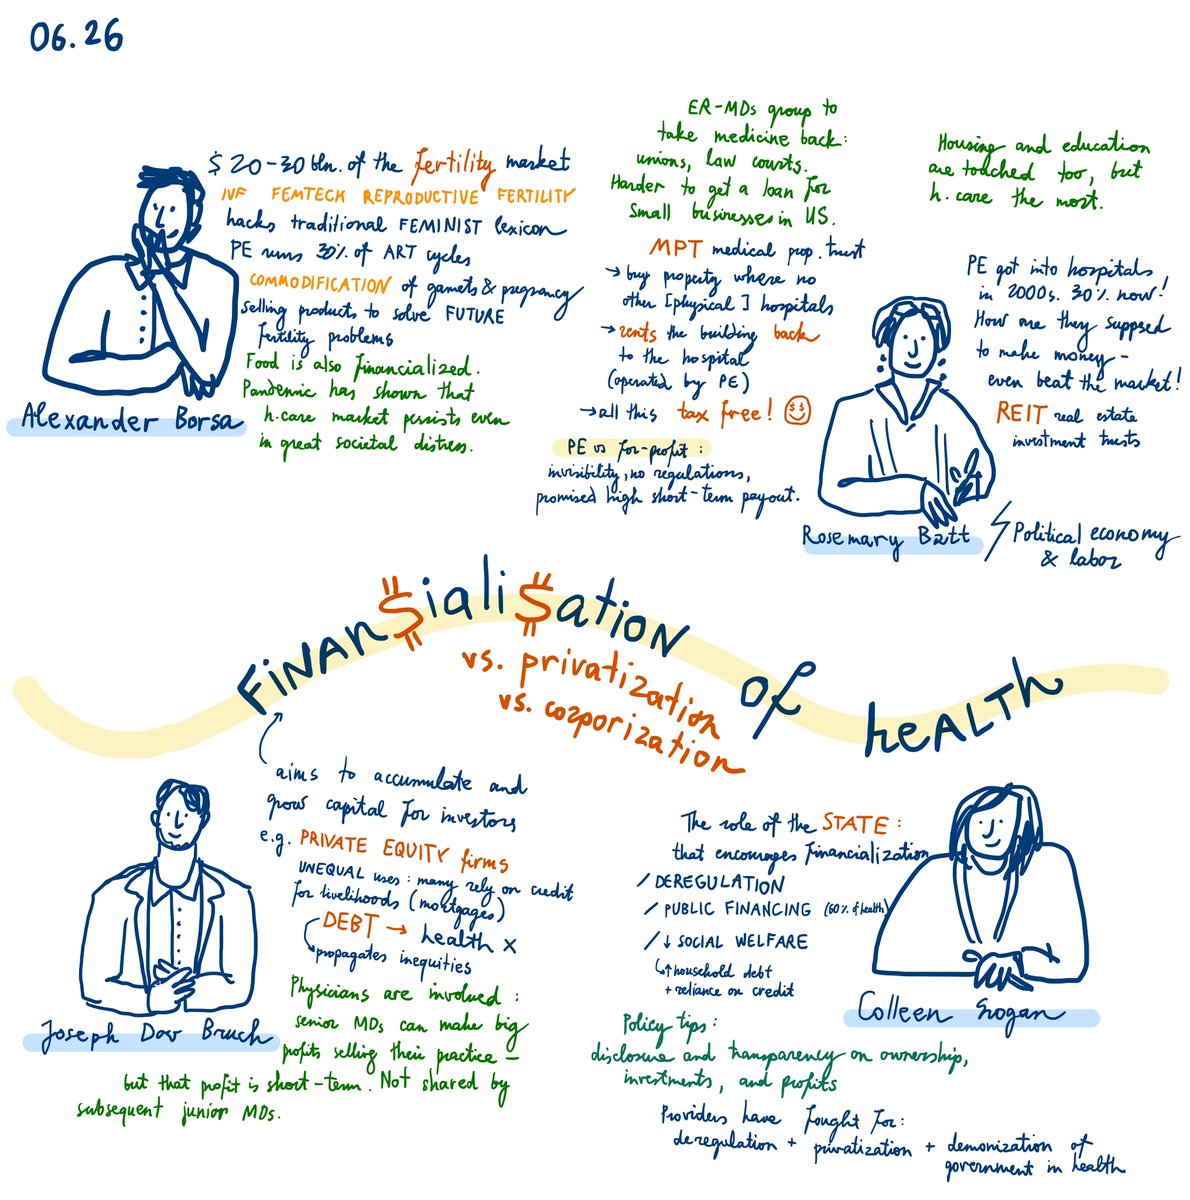 06.26
$ 20-30 bln. of the fertility market
IVF FEMTECK REPRODUCTIVE FERTILITY
hacks traditional FEMINIST lexicon
PE runs 30% of ART cycles
COMMODIFICATION of gamets & pregnancy
selling products to solve FUTURE
fertility problems
Food is also financialized.
Pandemic has shown that
h.care market persists even
in great societal distress.
Alexander Borsa
ER-MDs group to
take medicine back:
unions, law courts.
Harder to get a loan for
small businesses in US.
MPT medical prop. trust
→ buy property where no
other [physical] hospitals
→ rents the building back
to the hospital
(operated by PE)
→ all this tax free!
PE vs for-profit:
invisibility, no regulations,
promised high short-term payout.
Housing and education
are touched too, but
h. care the most.
PE got into hospitals
in 2000s. 30% now!
How are they suppsed
to make money -
even beat the market!
REIT real estate
investment trusts
Rosemary Batt
Political economy
& labor
FiNAN$iali$ation of heALTh
vs. privatization
vs. corporization
aims to accumulate and
grow capital for investors
e.g. PRIVATE EQUITY firms
UNEQUAL uses: many rely on credit
for livelihoods (mortgages)
DEBT → health x
propagates inequities
Physicians are involved:
senior MDs can make big
profits selling their practice -
but that profit is short-term. Not shared by
subsequent junior MDs.
Joseph Dov Bruch
The role of the STATE:
that encourages financialization
/ DEREGULATION
/ PUBLIC FINANCING (60% of health)
/ ↓ SOCIAL WELFARE
↑ household debt
+ reliance on credit
Colleen Grogan
Policy tips:
disclosure and transparency on ownership,
investments, and profits
Providers have fought for:
deregulation + privatization + demonization of
government in health